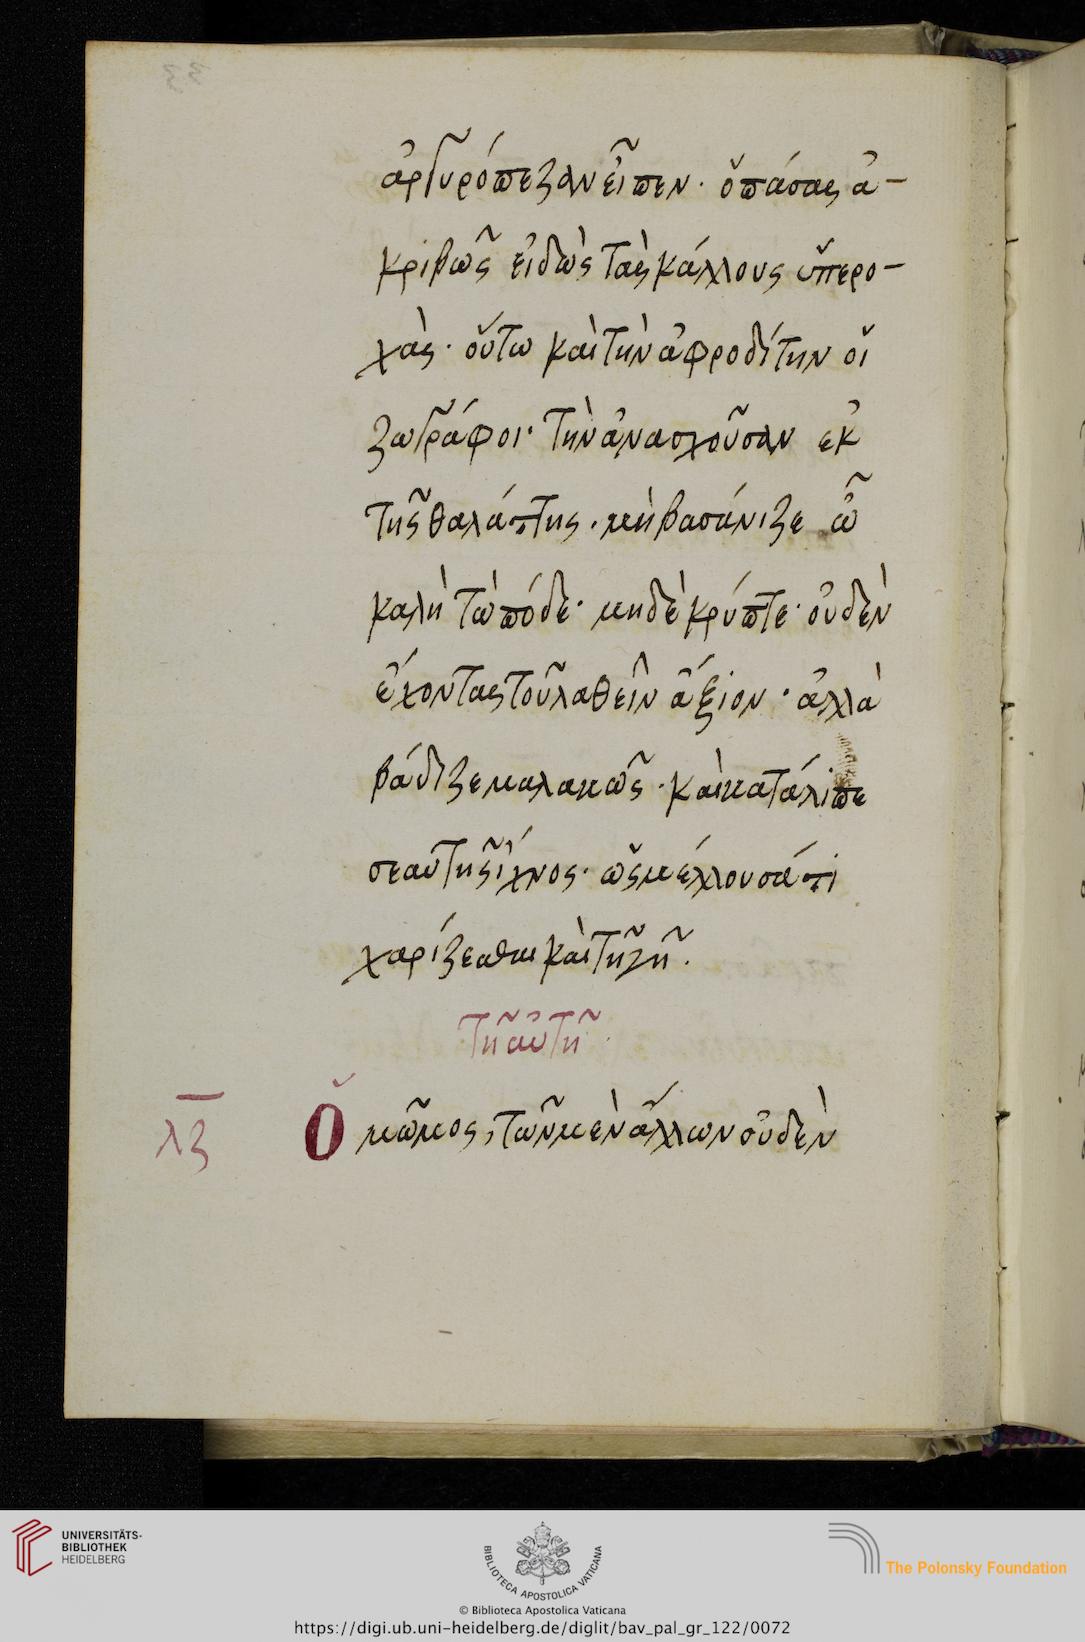 33
ἀργυρόπεζαν εἶπεν· ὁ πάσας ἀ-
κριβῶς εἰδὼς τὰς κάλλους ὑπερο-
χάς· οὕτω καὶ τὴν ἀφροδίτην οἱ
ζωγράφοι· τὴν ἀνασχοῦσαν ἐκ
τῆς θαλάττης. μὴ βασάνιζε ὦ
καλὴ τὼ πόδε· μηδὲ κρύπτε· οὐδὲν
ἔχοντας τοῦ λαθεῖν ἄξιον· ἀλλὰ
βάδιζε μαλακῶς· καὶ κατάλιπε
σεαυτῆς ἴχνος· ὡς μέλλουσά τι
χαρίζεσθαι καὶ τῇ γῇ.
τῇ αὐτῇ
λζ Ὁ μῶμος, τῶν μὲν ἄλλων οὐδὲν
UNIVERSITÄTS-
BIBLIOTHEK
HEIDELBERG
BIBLIOTECA APOSTOLICA VATICANA
The Polonsky Foundation
© Biblioteca Apostolica Vaticana
https://digi.ub.uni-heidelberg.de/diglit/bav_pal_gr_122/0072